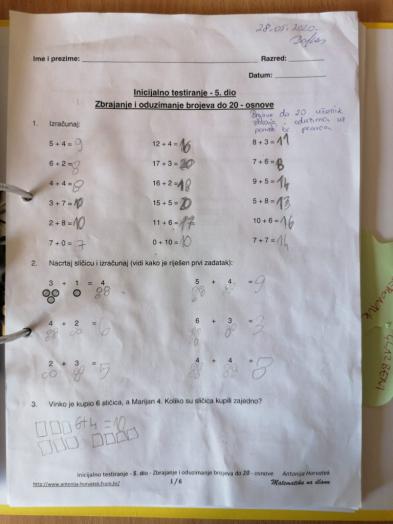 28.05.2020.
Ime i prezime: Razred:
Datum:
Inicijalno testiranje - 5. dio
Zbrajanje i oduzimanje brojeva do 20 - osnove
Brojeve do 20 učenik
zbraja i oduzima uz
pomoć
1. Izračunaj:
5 + 4 = 9 12 + 4 = 16 8 + 3 = 11
6 + 2 = 8 17 + 3 = 20 7 + 6 =
4 + 4 = 8 16 + 2 = 18 9 + 5 = 14
3 + 7 = 10 15 + 5 = 20 5 + 8 = 13
2 + 8 = 10 11 + 6 = 17 10 + 6 = 16
7 + 0 = 7 0 + 10 = 10 7 + 7 = 14
2. Nacrtaj sličicu i izračunaj (vidi kako je riješen prvi zadatak):
3 + 1 = 4 5 + 4 = 9
4 + 2 = 6 6 + 3 =
2 + 3 = 5 4 + 4 =
3. Vinko je kupio 6 sličica, a Marijan 4. Koliko su sličica kupili zajedno?
6+4=10
Inicijalno testiranje - 5. dio - Zbrajanje i oduzimanje brojeva do 20 - osnove Antonija Horvatek
http://www.antonija-horvatek.from.hr/ 1 / 6 Matematika na dlanu